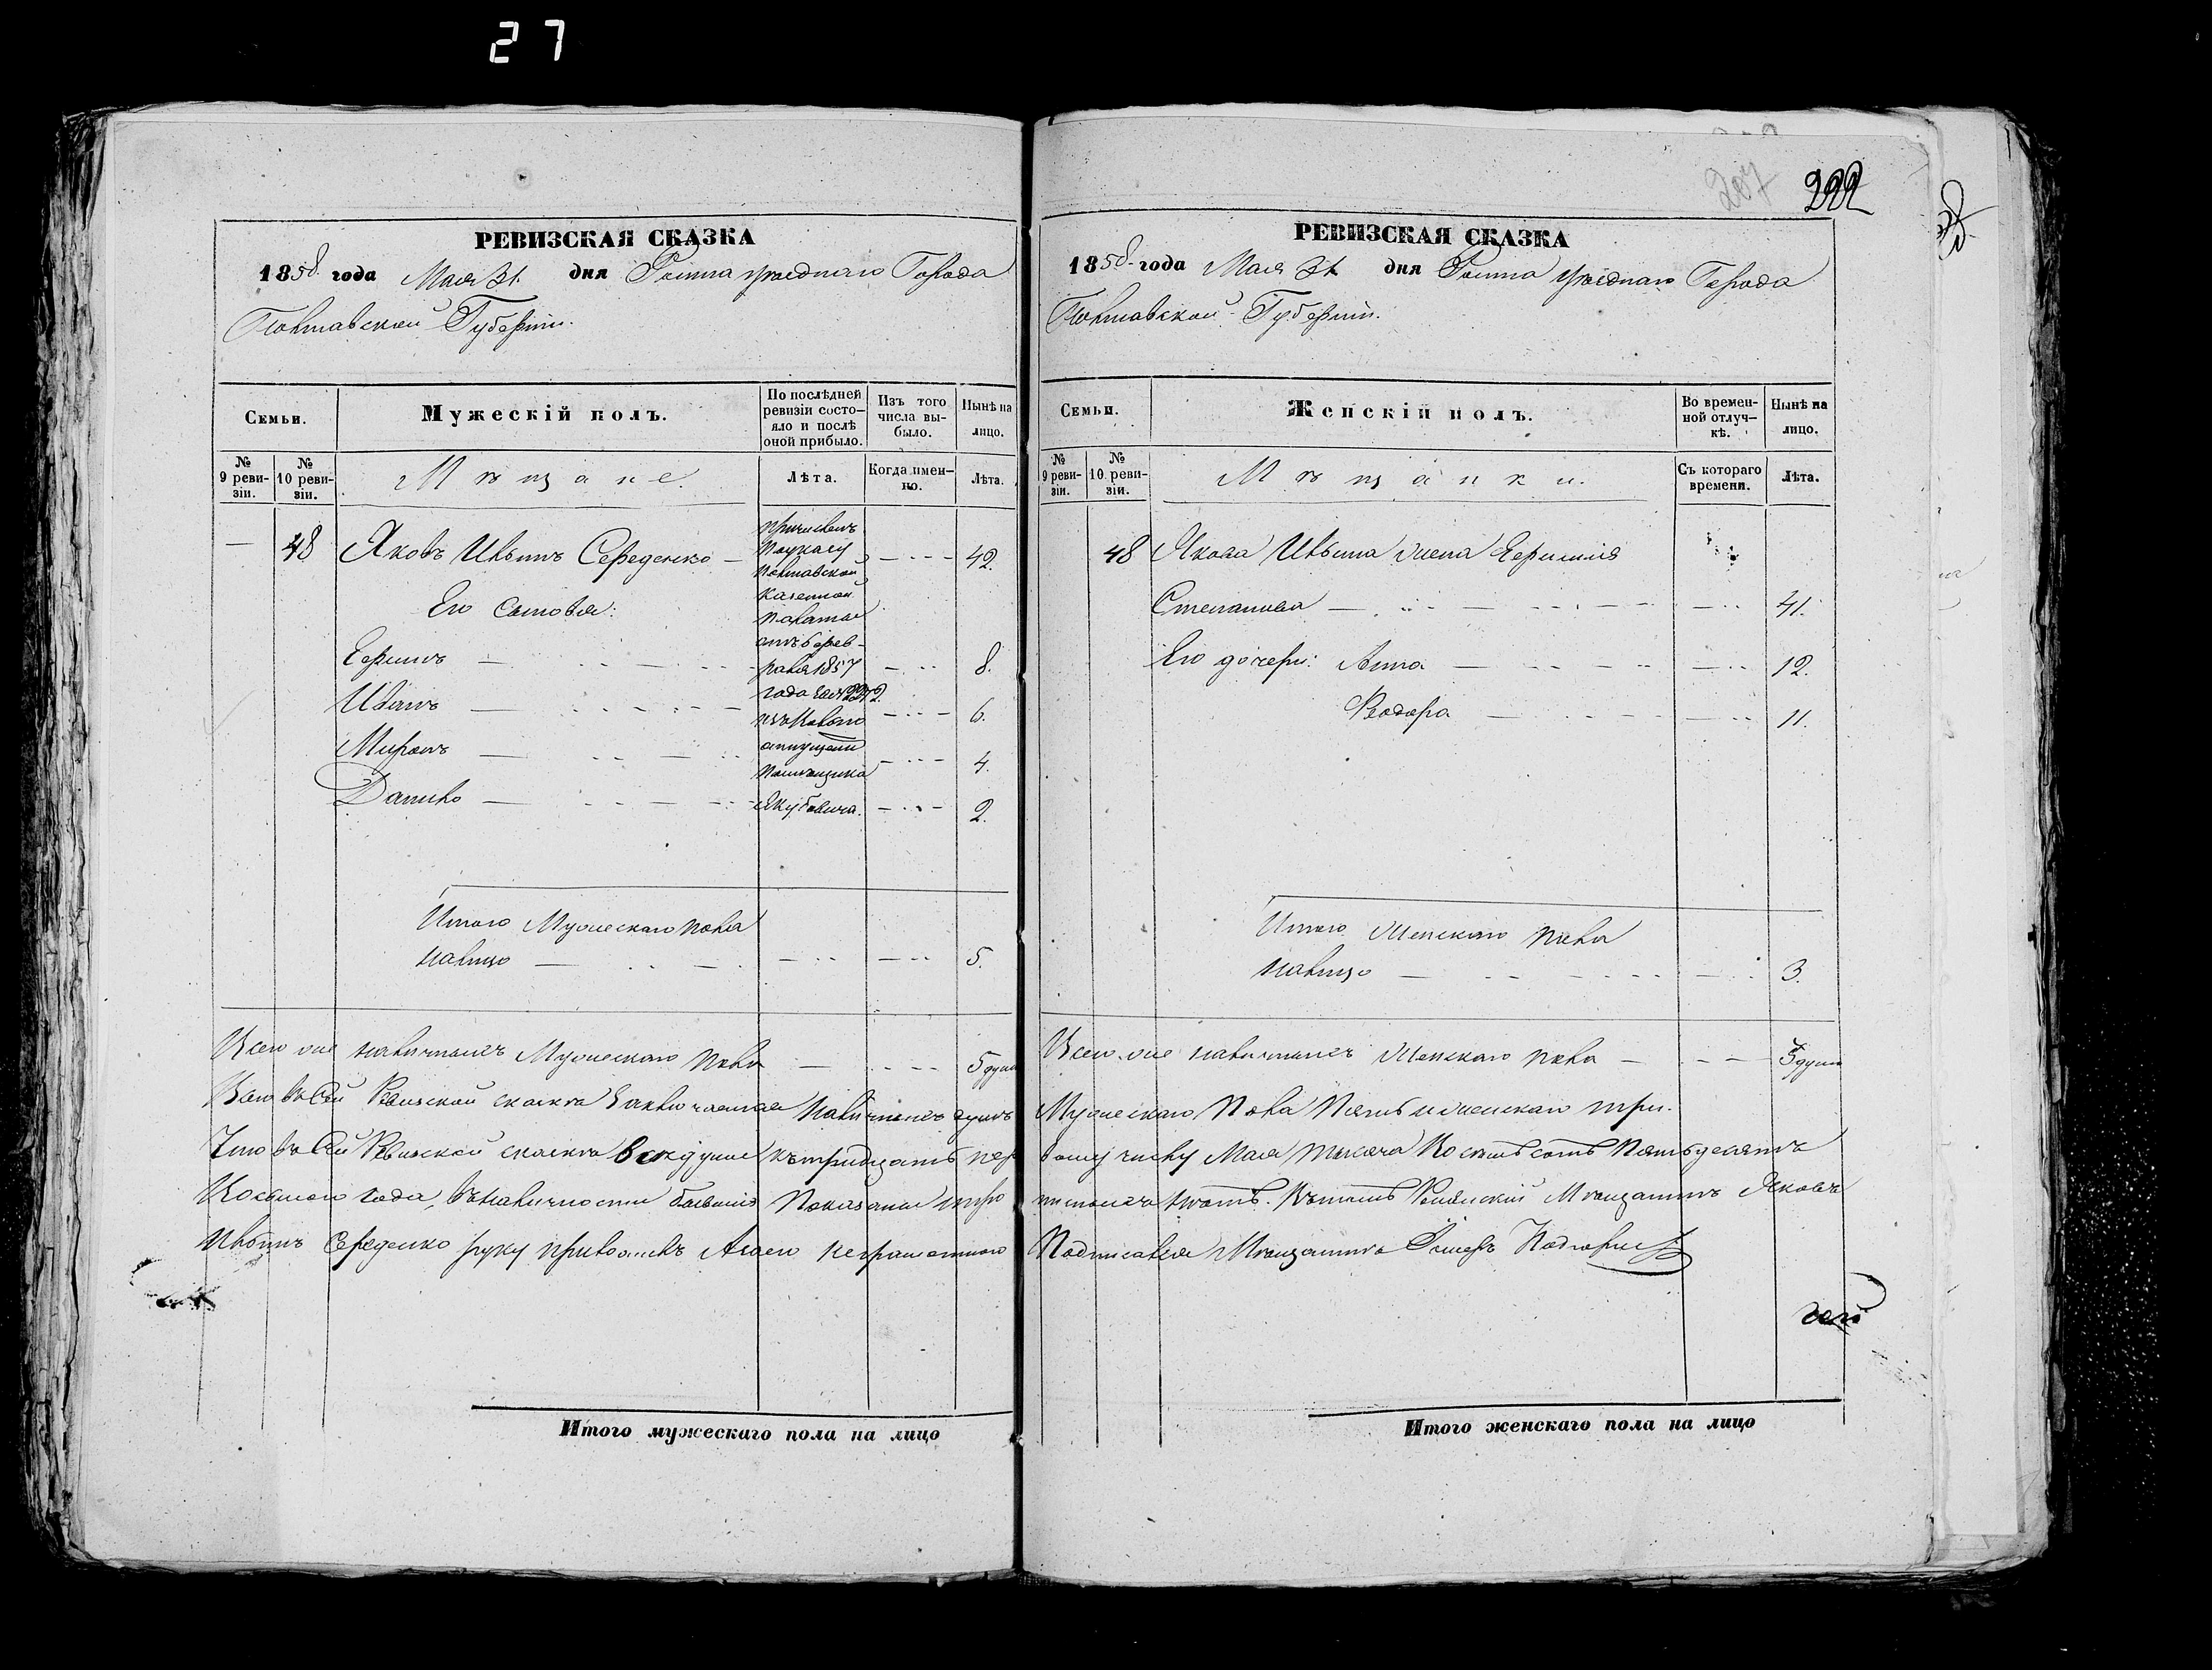 27
РЕВИЗСКАЯ СКАЗКА
1858 года Мая 31 дня Ромна уѣзднаго Города
Полтавской Губерніи.
Семьи.
Мужескій полъ.
По послѣдней ревизіи состояло и послѣ оной прибыло.
Изъ того числа выбыло.
Нынѣ на лицо.
№ 9 ревизіи.
№ 10 ревизіи.
Мѣщане.
Лѣта.
Когда именно.
Лѣта.
— 48 Яковъ Ивановъ Середенко — 42.
Его сыновья:
Ефимъ — 8.
Иванъ — 6.
Миронъ — 4.
Данило — 2.
причисленъ
по указу
Полтавской
Казенной
палаты
отъ Февраля 1857
года за №
изъ
отпущен
помѣщика
Якубовича.
Итого Мужескаго пола
налицо — 5.
Всего же наличныхъ Мужескаго пола — 5 душъ
Всего въ сей Ревизской сказкѣ заключается наличныхъ душъ
Что въ сей Ревизской сказкѣ всѣ души къ тридцать пер
Восьмаго года, въ наличности бывшія показаны и про
Середенко руку приложилъ А за его неграмотнаго
Итого мужескаго пола на лицо
207
222
РЕВИЗСКАЯ СКАЗКА
1858 года Мая 31 дня Ромна уѣзднаго Города
Полтавской Губерніи.
Семьи.
Женскій полъ.
Во временной отлучкѣ.
Нынѣ на лицо.
№ 9 ревизіи.
№ 10 ревизіи.
Мѣщанки.
Съ котораго времени.
Лѣта.
48 Якова жена
Степанова — 41.
Его дочери: Анна — 12.
Феодора — 11.
Итого Женскаго пола
налицо — 3.
Всего же наличныхъ Женскаго пола — 3 души
Мужескаго пола пять и женскаго три.
вому числу Мая тысяча восемьсотъ пятьдесятъ
нѣтъ. Въ томъ Роменскій Мѣщанинъ Яковъ
Подписался Мѣщанинъ
Итого женскаго пола на лицо